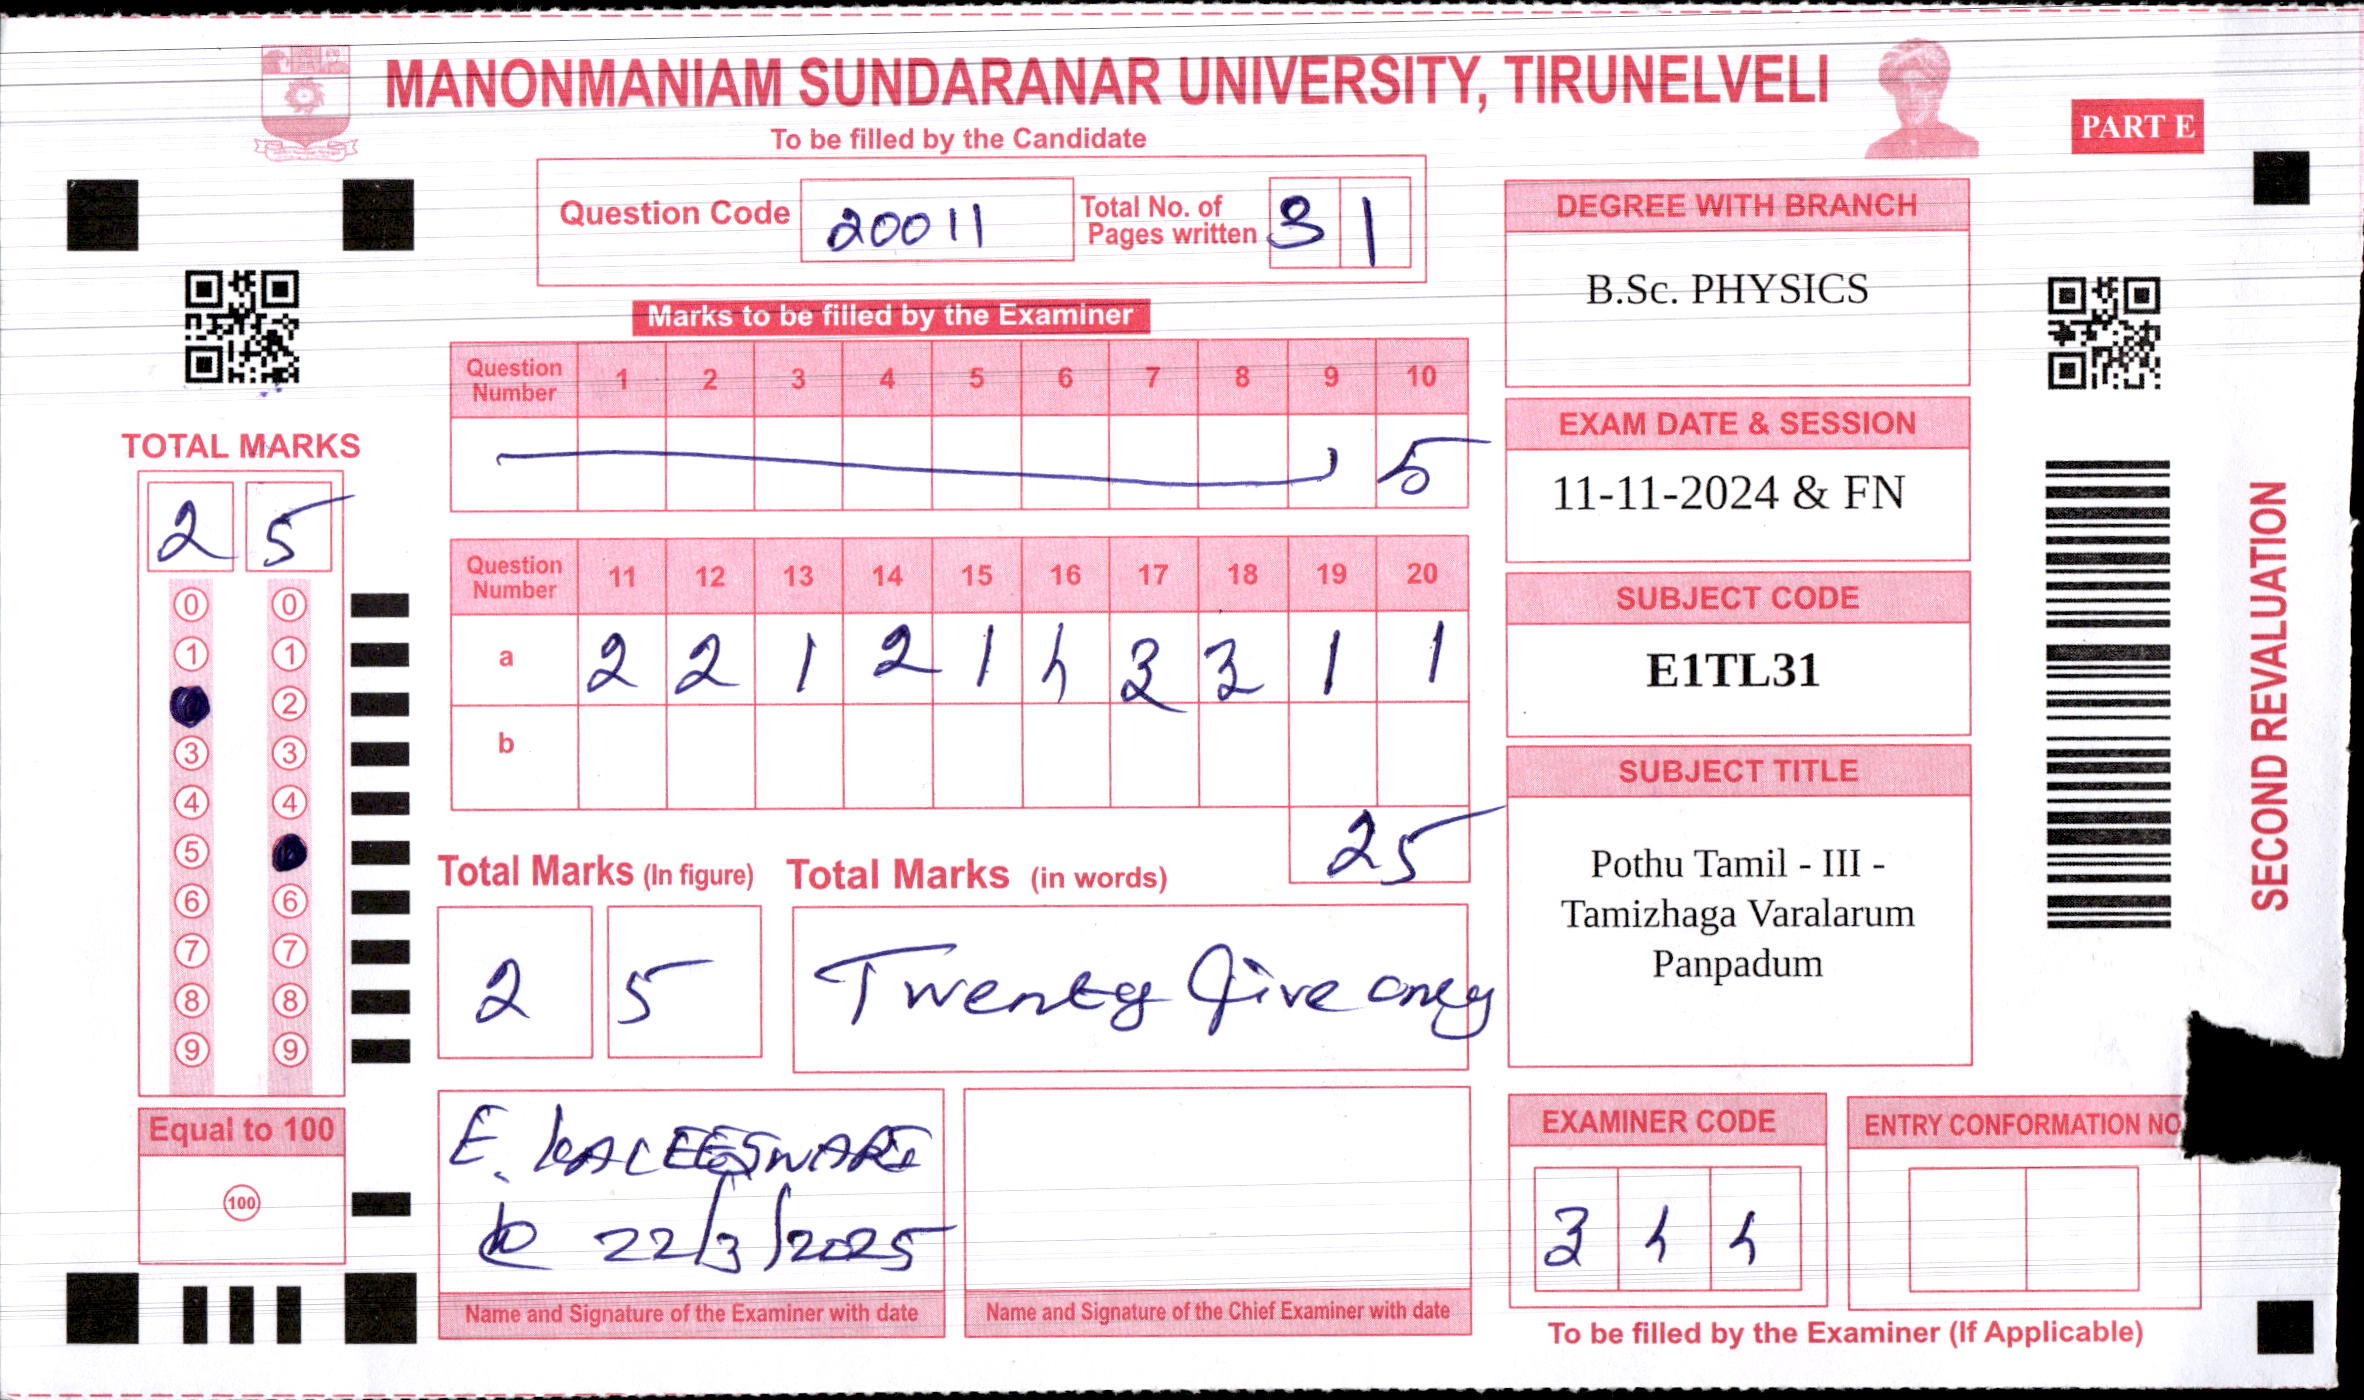 MANONMANIAM SUNDARANAR UNIVERSITY, TIRUNELVELI
To be filled by the Candidate
PART E
Question Code 20011 Total No. of Pages written 31
Marks to be filled by the Examiner
Question Number 1 2 3 4 5 6 7 8 9 10
5
Question Number 11 12 13 14 15 16 17 18 19 20
a 2 2 1 2 1 4 3 3 1 1
b
25
TOTAL MARKS
2 5
0 0
1 1
2
3 3
4 4
5
6 6
7 7
8 8
9 9
Equal to 100
100
Total Marks (In figure) Total Marks (in words)
2 5 Twenty five only
E. KALEESWARI
22/3/2025
Name and Signature of the Examiner with date
Name and Signature of the Chief Examiner with date
DEGREE WITH BRANCH
B.Sc. PHYSICS
EXAM DATE & SESSION
11-11-2024 & FN
SUBJECT CODE
E1TL31
SUBJECT TITLE
Pothu Tamil - III -
Tamizhaga Varalarum
Panpadum
EXAMINER CODE
3 4 4
ENTRY CONFORMATION NO
To be filled by the Examiner (If Applicable)
SECOND REVALUATION